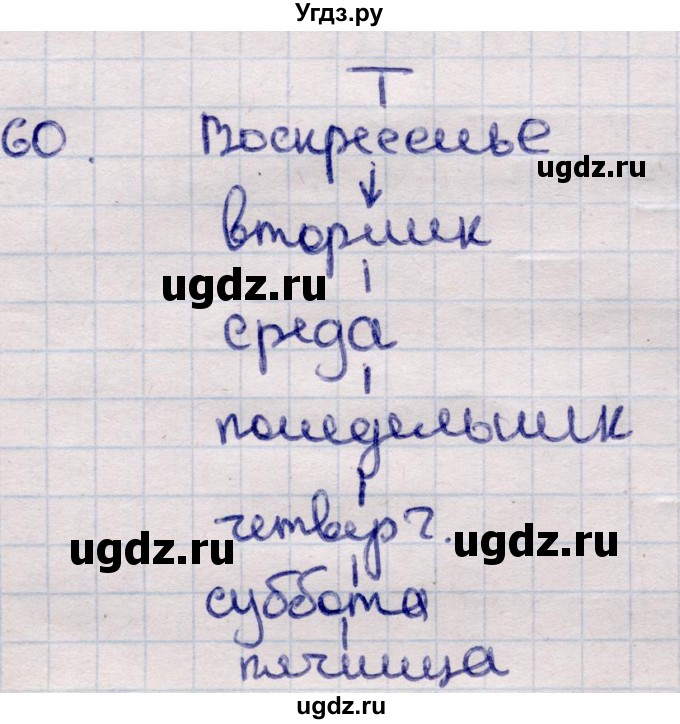 Угдз.ру
Т
60. Воскресенье
ugdz.ru
вторник
ugdz.ru
среда
понедельник
четверг.
ugdz.ru
ugdz.ru
суббота
пятница
ugdz.ru